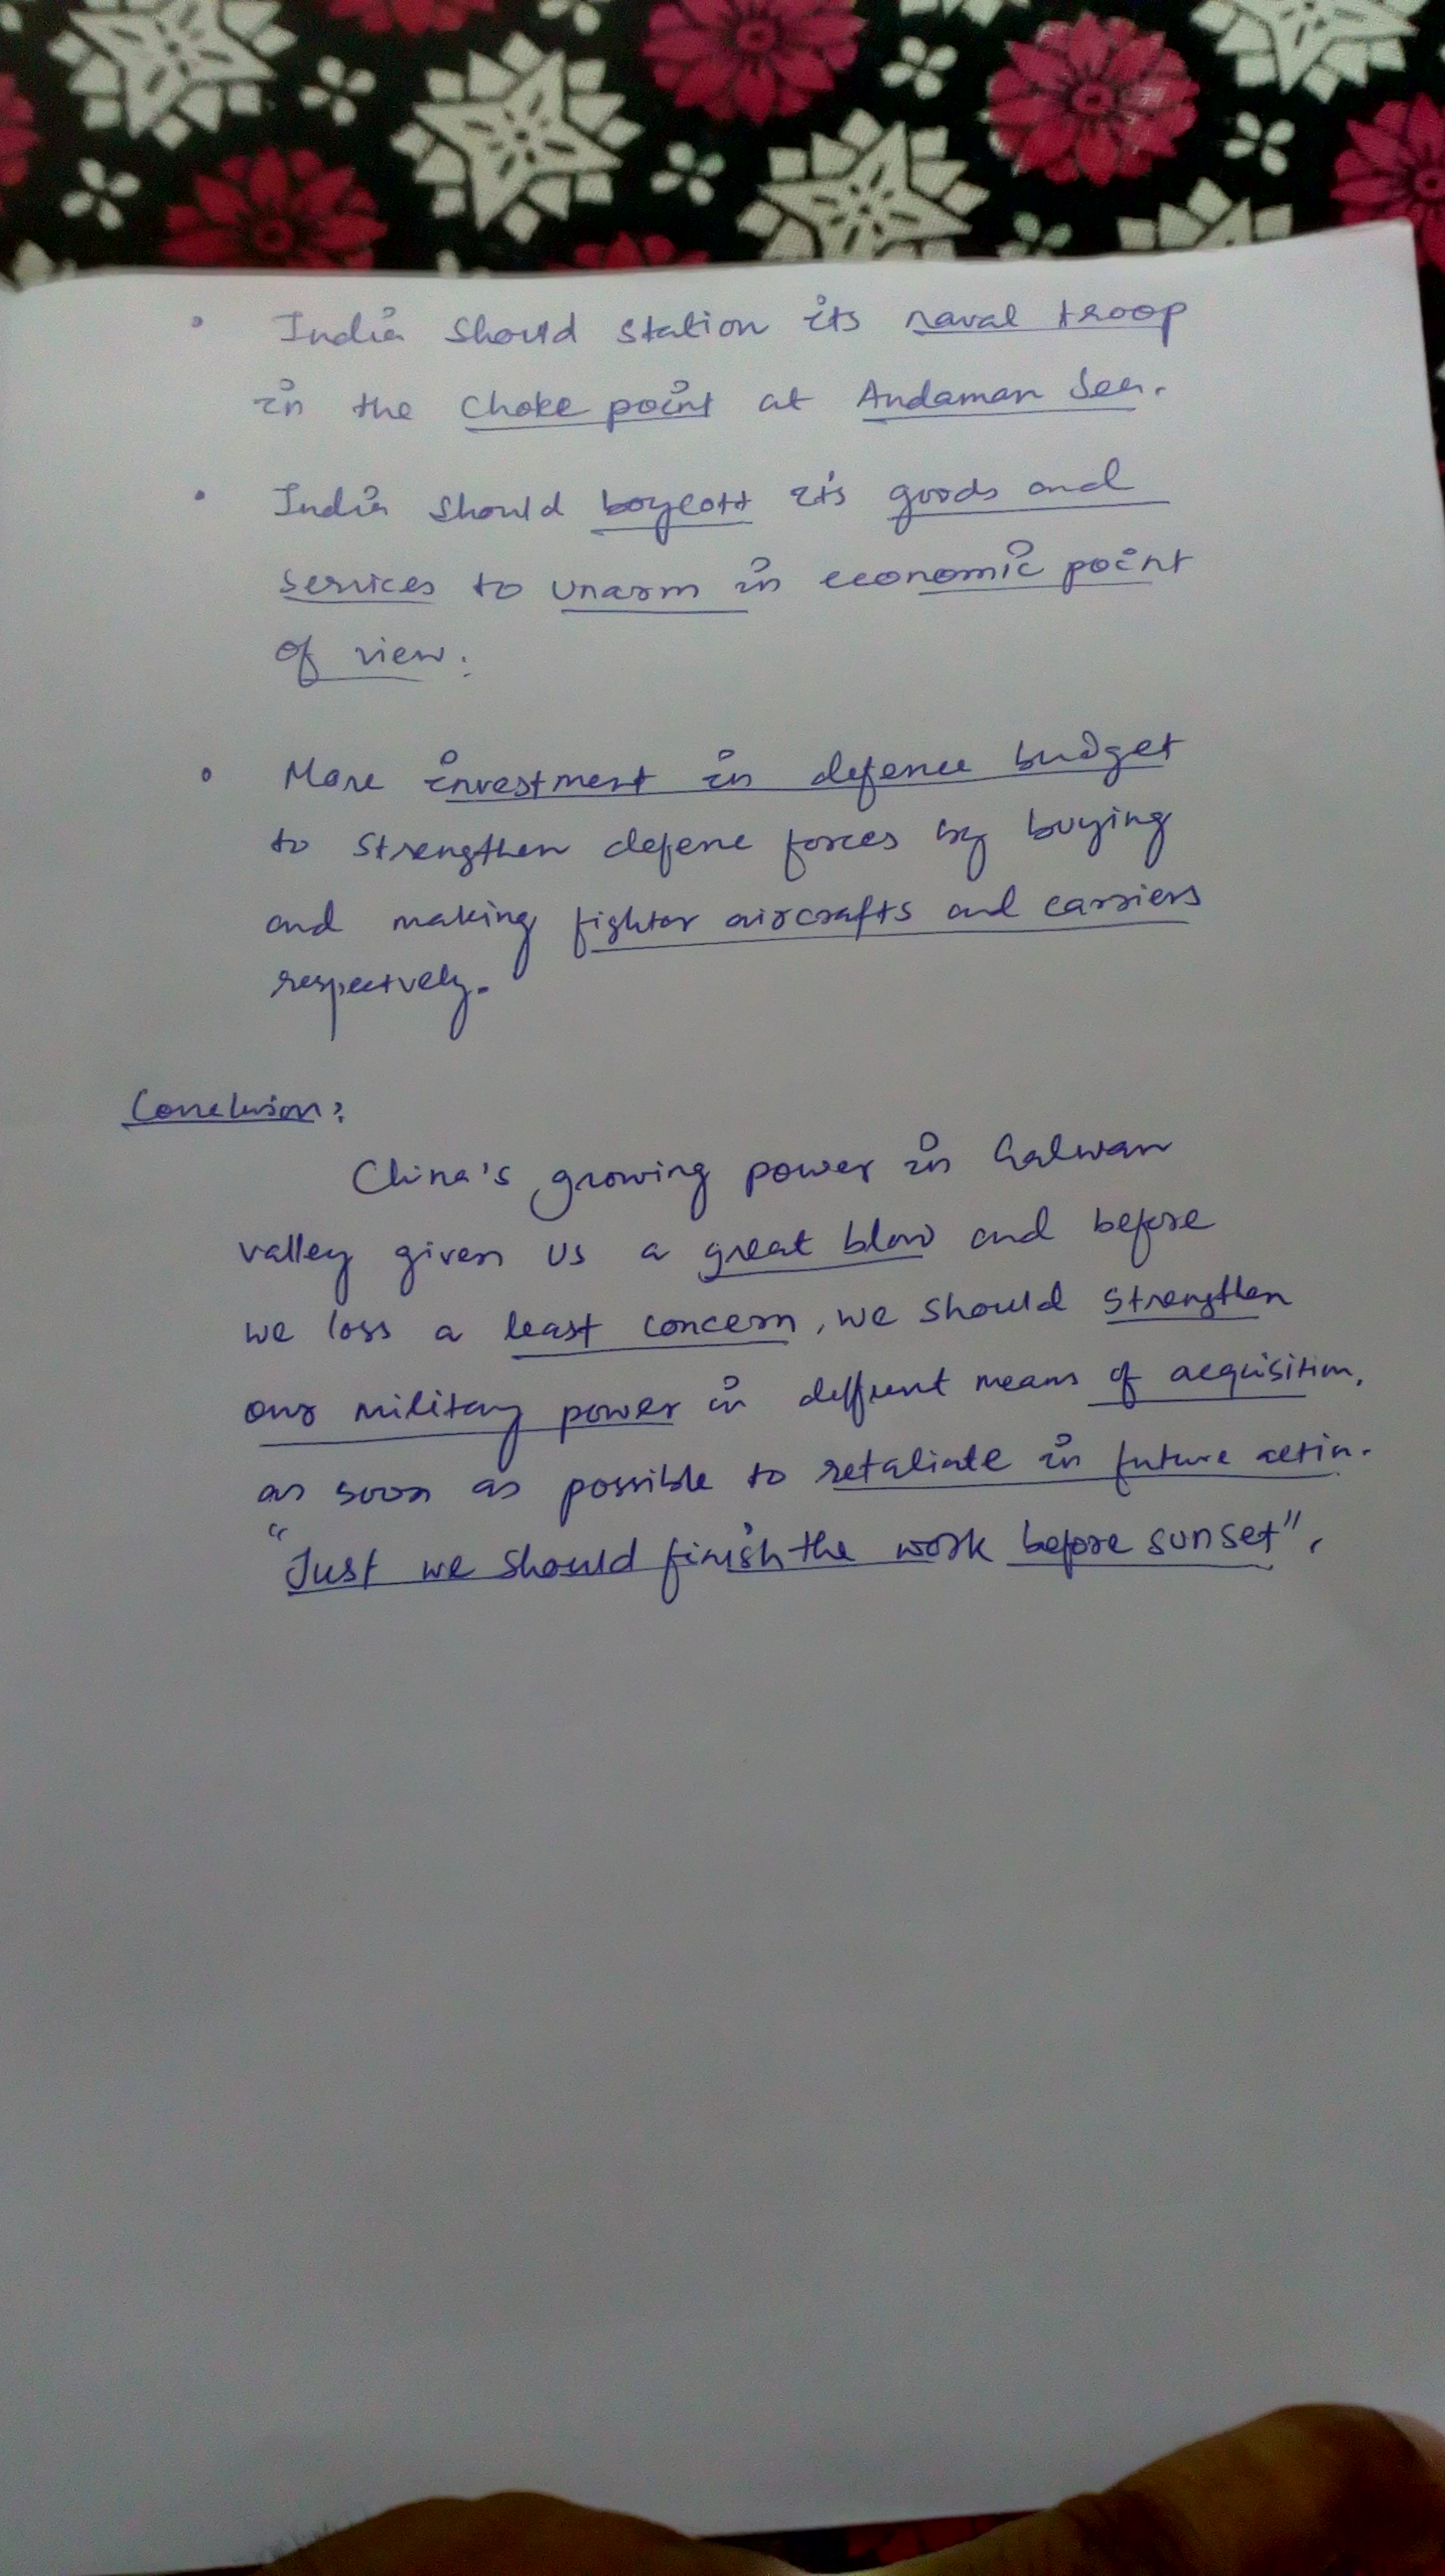 • India should station its naval troop
in the choke point at Andaman Sea.
• India should boycott its goods and
services to unarm in economic point
of view.
• More investment in defence budget
to strengthen defene forces by buying
and making fighter aircrafts and carriers
respectvely.
Conclusion:
China's growing power in Galwan
valley given us a great blow and before
we loss a least concern, we should strengthen
our military power in diffrent means of acquisition.
as soon as possible to retaliate in future action.
"Just we should finish the work before sunset".